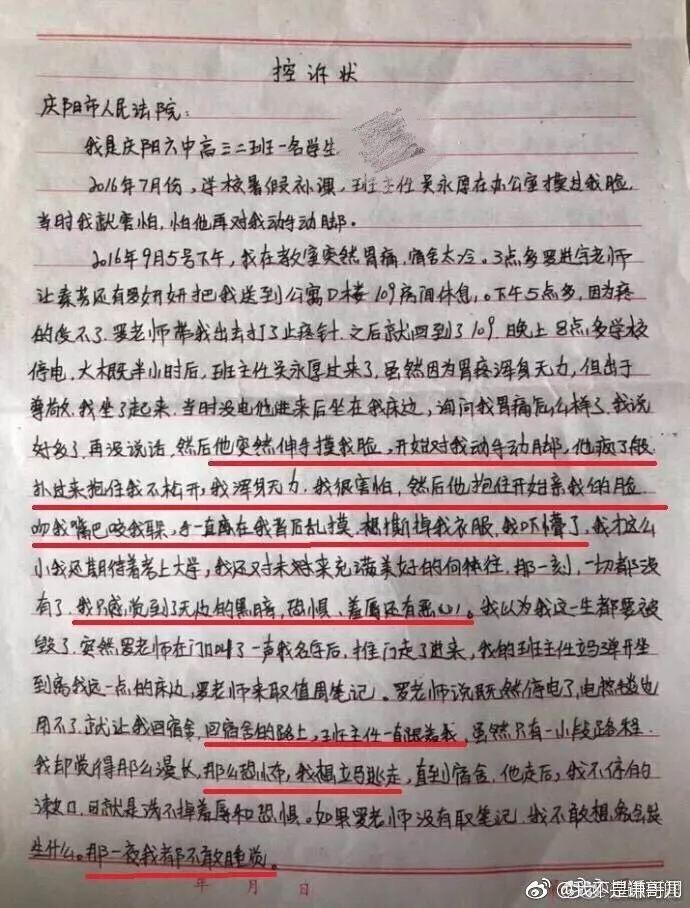 控诉状
庆阳市人民法院:
我是庆阳六中高三二班一名学生
2016年7月份,学校暑假补课,班主任吴永厚在办公室摸过我脸,
当时我就害怕,怕他再对我动手动脚。
2016年9月5号下午,我在教室突然胃痛,宿舍太冷。3点多罗进宇老师
让素芳还有罗妍妍把我送到公寓D楼109房间休息。下午5点多,因为疼
的受不了.罗老师带我出去打了止疼针.之后就回到了109.晚上8点多学校
停电,大概半小时后,班主任吴永厚过来了.虽然因为胃疼浑身无力,但出于
尊敬.我坐了起来.当时没电他进来后坐在我床边,询问我胃痛怎么样了.我说
好多了.再没说话.然后他突然伸手摸我脸,开始对我动手动脚,他疯了般
扑过来抱住我不松开,我浑身无力.我很害怕,然后他抱住开始亲我的脸
吻我嘴巴咬我耳朵,手一直在我背后乱摸.想撕掉我衣服.我吓懵了,我才这么
小我还期待着考上大学,我还对未来充满美好的向往,那一刻,一切都没
有了.我只感觉到了无边的黑暗,恐惧、羞辱还有恶心。我以为我这一生都要被
毁了.突然罗老师在门口叫了一声我名字后,推门走了进来,我的班主任立马弹开坐
到离我远一点的床边,罗老师来取值周笔记。罗老师说既然停电了,电热毯也
用不了.就让我回宿舍,回宿舍的路上,班主任一直跟着我,虽然只有一小段路程.
我却觉得那么漫长,那么恐怖,我想立马逃走,直到宿舍,他走后,我不停的
漱口,可就是洗不掉羞辱和恐惧。如果罗老师没有取笔记,我不敢想象会发
生什么。那一夜我都不敢睡觉。
年 月 日
@我不是谦哥儿